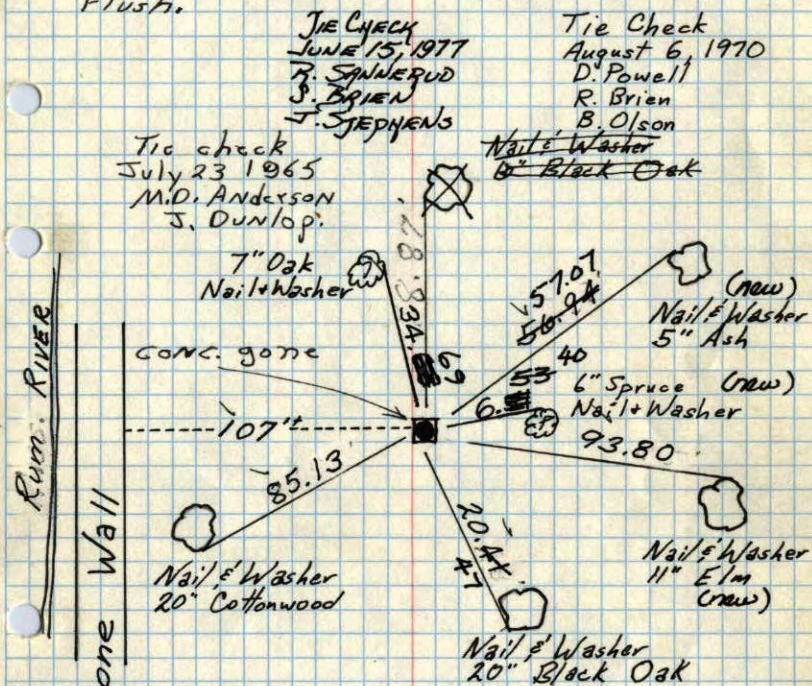 Flush.
TIE CHECK
JUNE 15, 1977
R. SANNERUD
S. BRIEN
J. STEPHENS
Tie Check
August 6, 1970
D. Powell
R. Brien
B. Olson
Nail & Washer
Black Oak
Tie check
July 23 1965
M.D. Anderson
J. Dunlop.
7" Oak
Nail + Washer
34.
69
57.07
56.94
(new)
Nail & Washer
5" Ash
conc. gone
40
53
6.
6" Spruce (new)
Nail + Washer
Rum. RIVER
107'±
93.80
85.13
one Wall
20.41
47
Nail & Washer
20" Cottonwood
Nail & Washer
11" Elm
(new)
Nail & Washer
20" Black Oak